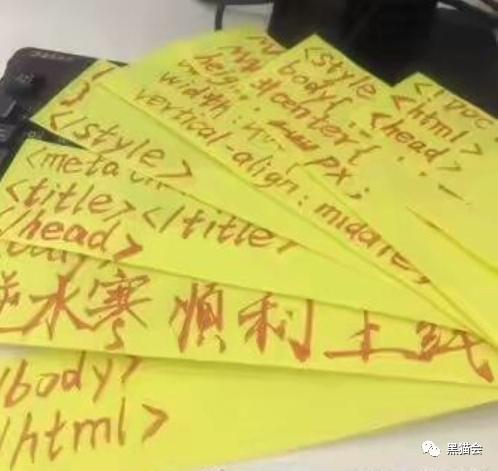 <!DOC
<html>
<head>
<style
body{
center{
width: px;
vertical-align: middle;
}
</style>
<meta
<title></title>
</head>
逆水寒 順利上线
/body>
/html>
黑猫会